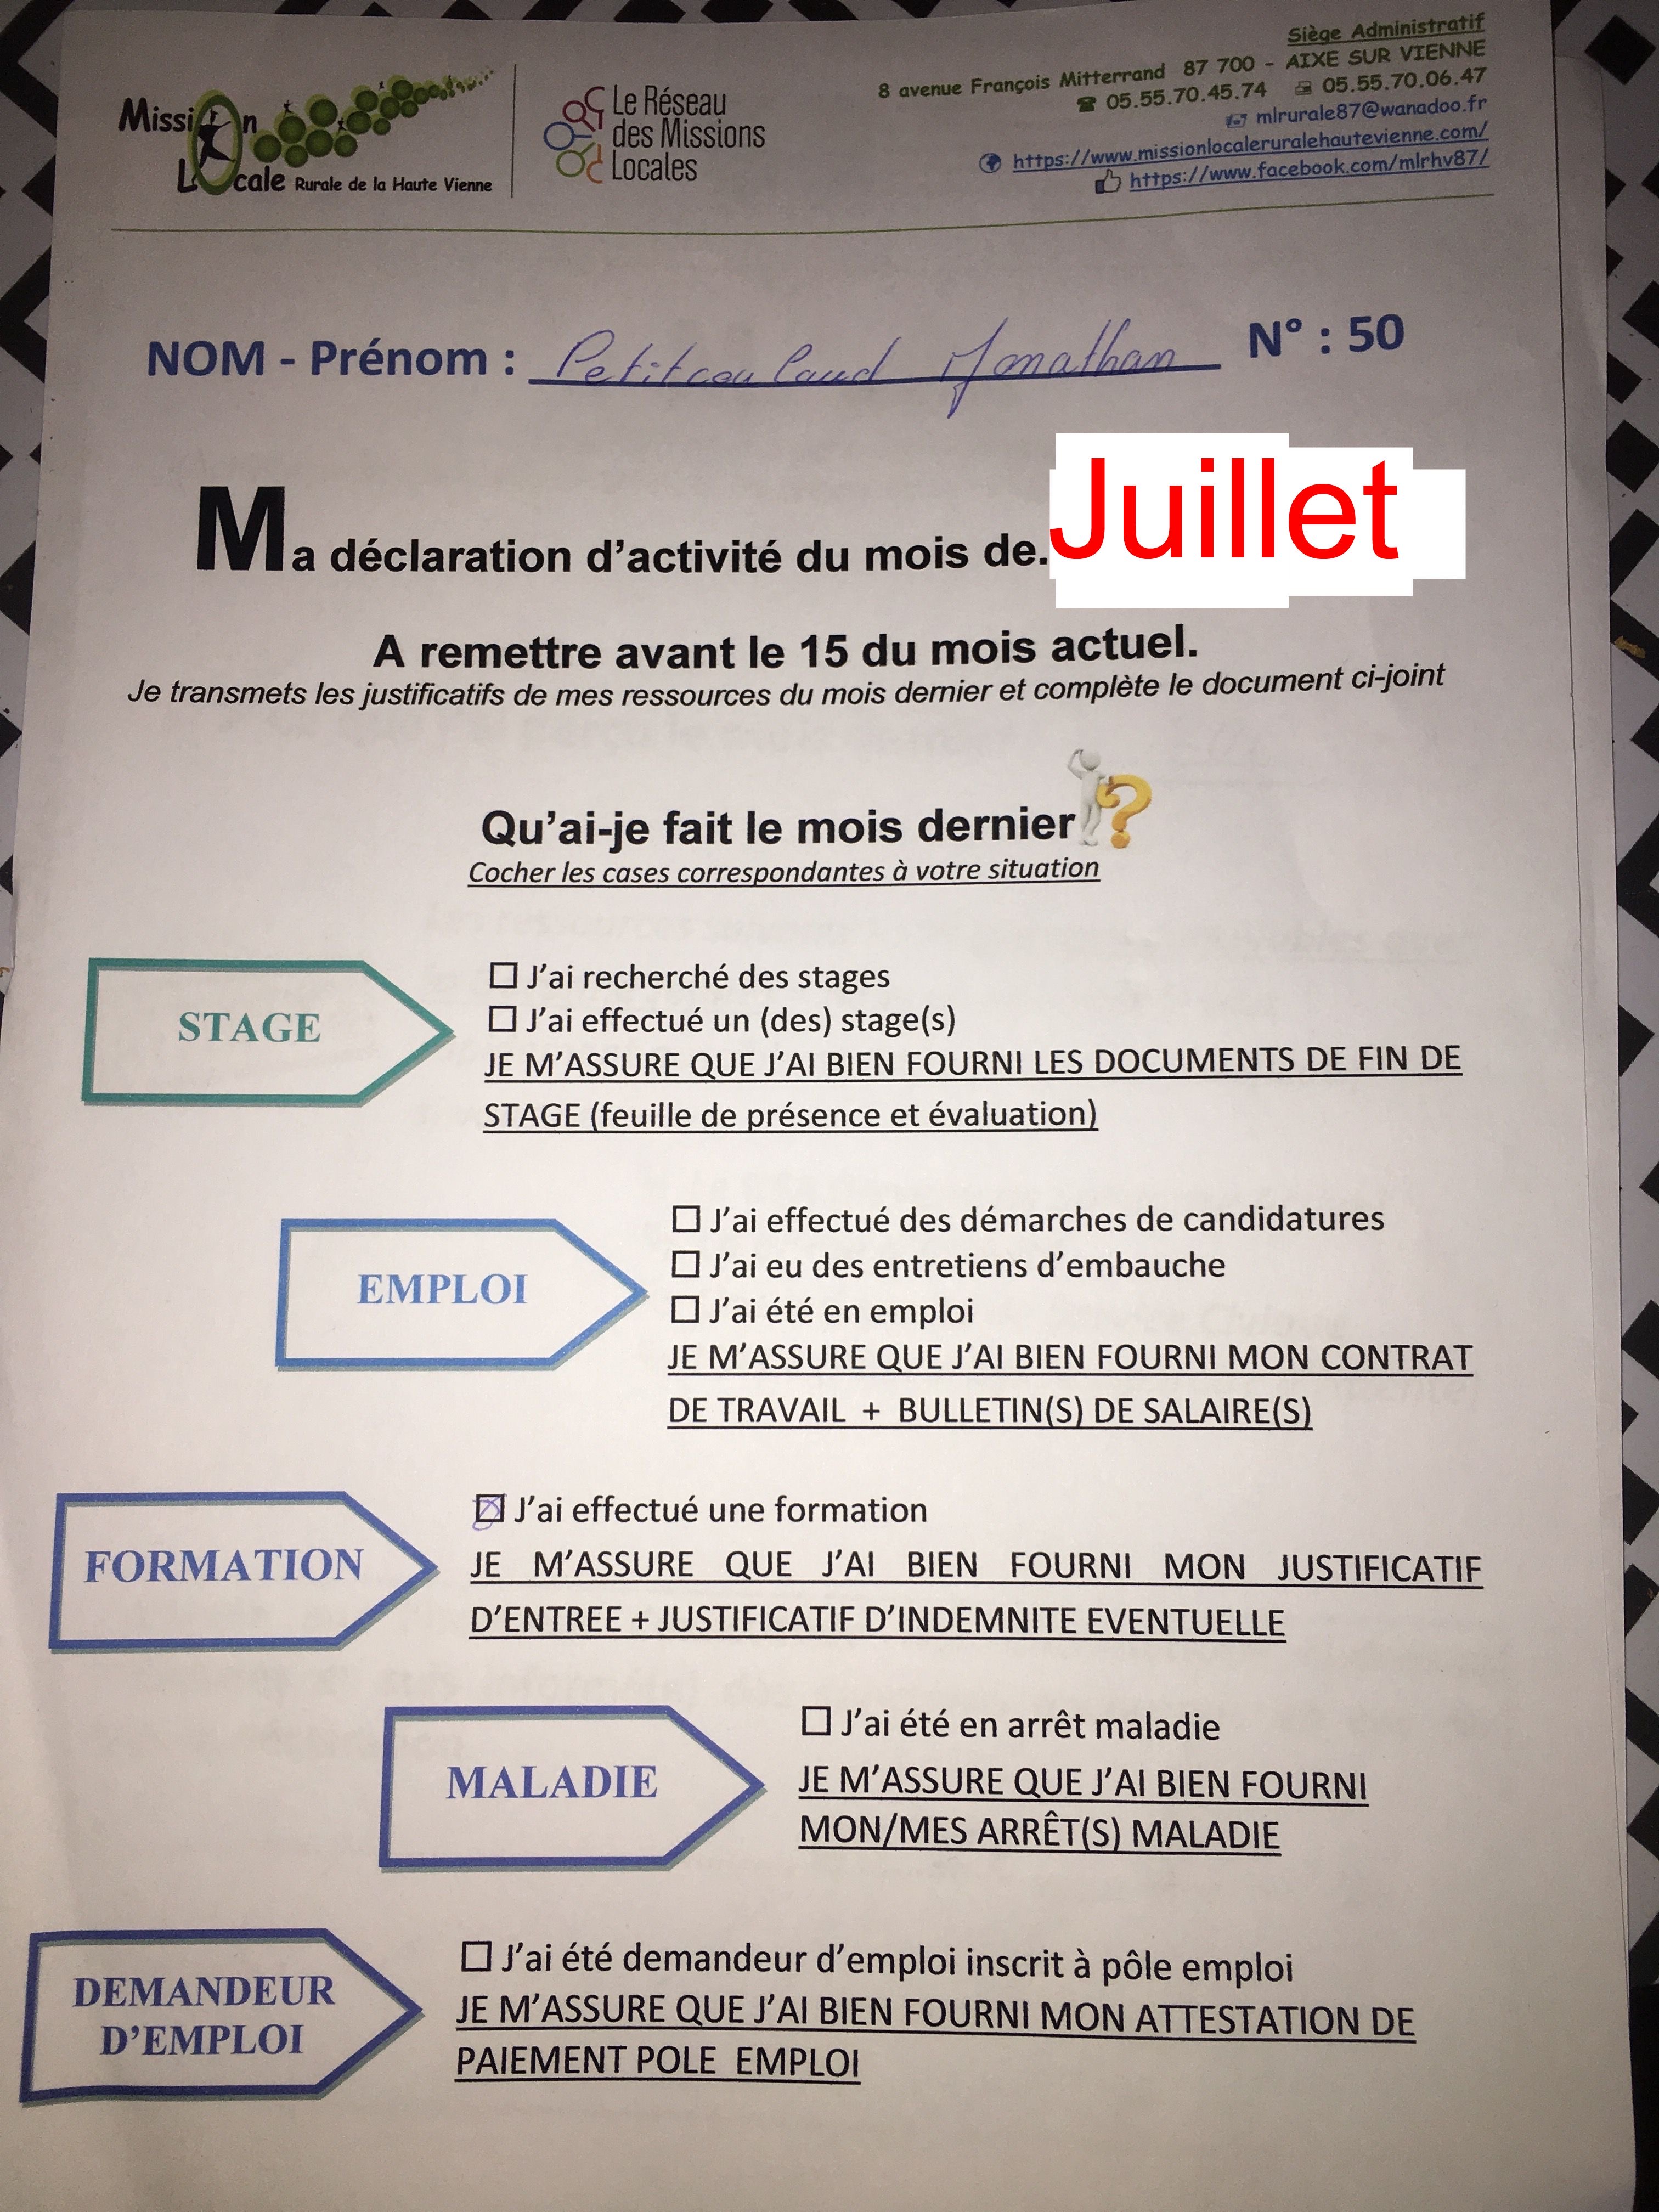 Mission
Locale Rurale de la Haute Vienne
Le Réseau
des Missions
Locales
Siège Administratif
8 avenue François Mitterrand 87 700 - AIXE SUR VIENNE
05.55.70.45.74 05.55.70.06.47
mlrurale87@wanadoo.fr
https://www.missionlocaleruralehautevienne.com/
https://www.facebook.com/mlrhv87/
NOM - Prénom : Petitcoulaud Jonathan N° : 50
Ma déclaration d'activité du mois de. Juillet
A remettre avant le 15 du mois actuel.
Je transmets les justificatifs de mes ressources du mois dernier et complète le document ci-joint
Qu'ai-je fait le mois dernier ?
Cocher les cases correspondantes à votre situation
STAGE
☐ J'ai recherché des stages
☐ J'ai effectué un (des) stage(s)
JE M'ASSURE QUE J'AI BIEN FOURNI LES DOCUMENTS DE FIN DE
STAGE (feuille de présence et évaluation)
EMPLOI
☐ J'ai effectué des démarches de candidatures
☐ J'ai eu des entretiens d'embauche
☐ J'ai été en emploi
JE M'ASSURE QUE J'AI BIEN FOURNI MON CONTRAT
DE TRAVAIL + BULLETIN(S) DE SALAIRE(S)
FORMATION
☒ J'ai effectué une formation
JE M'ASSURE QUE J'AI BIEN FOURNI MON JUSTIFICATIF
D'ENTREE + JUSTIFICATIF D'INDEMNITE EVENTUELLE
MALADIE
☐ J'ai été en arrêt maladie
JE M'ASSURE QUE J'AI BIEN FOURNI
MON/MES ARRÊT(S) MALADIE
DEMANDEUR
D'EMPLOI
☐ J'ai été demandeur d'emploi inscrit à pôle emploi
JE M'ASSURE QUE J'AI BIEN FOURNI MON ATTESTATION DE
PAIEMENT POLE EMPLOI